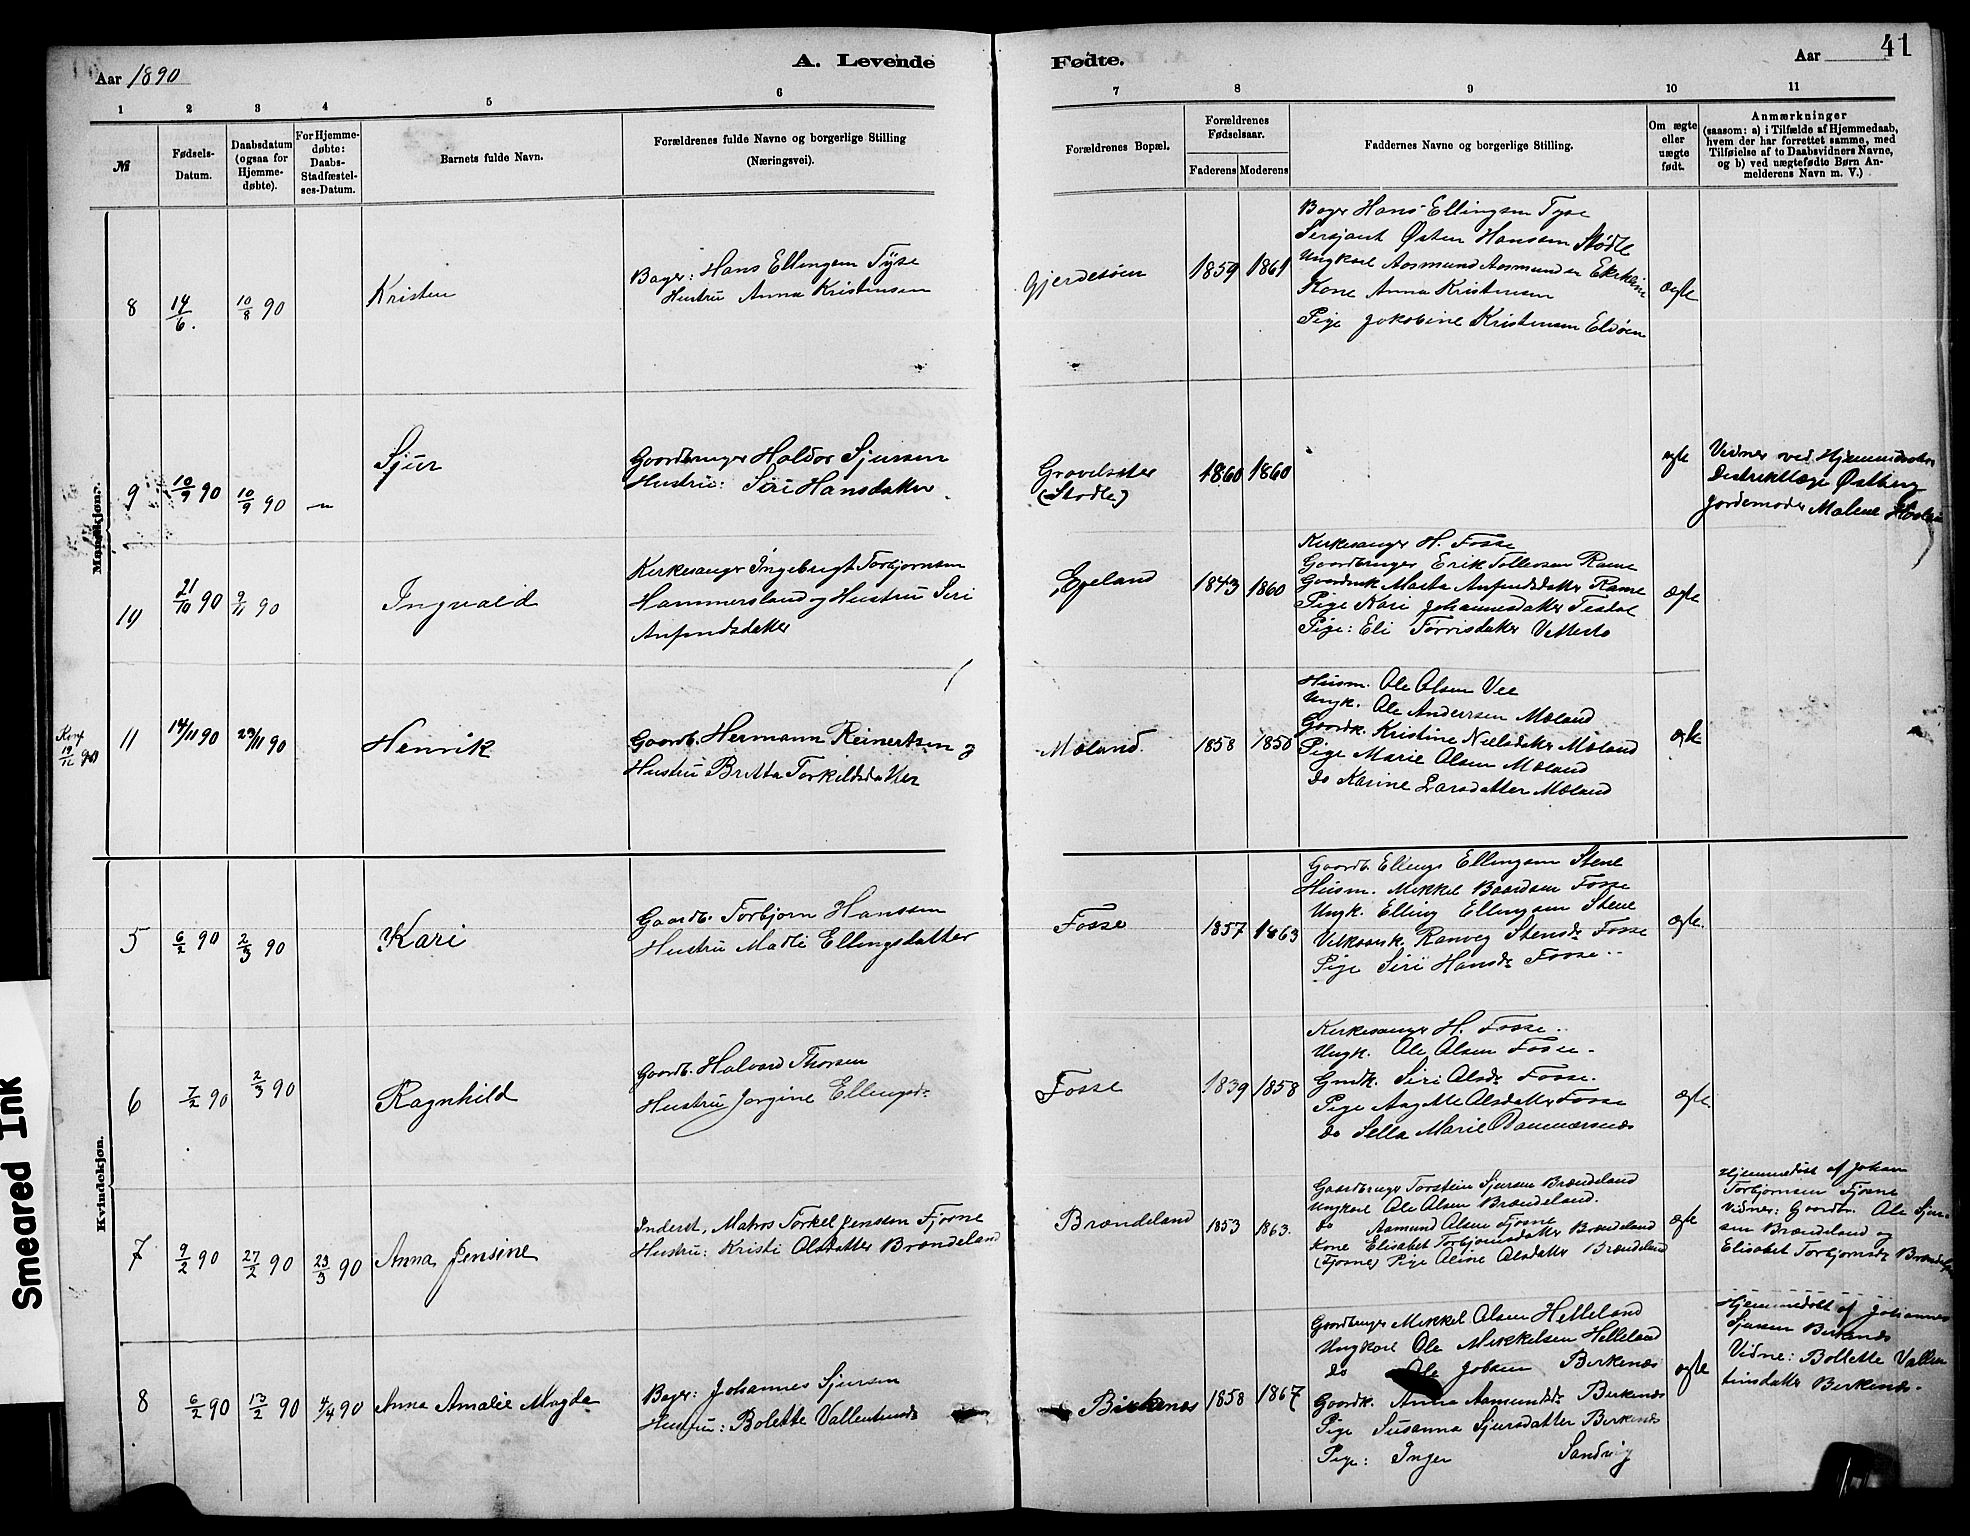 Aar 1890
A. Levende Fødte.
Aar
41
1 2 3 4 5 6 7 8 9 10 11
№
Fødsels-Datum.
Daabsdatum (ogsaa for Hjemmedøbte).
For Hjemmedøbte: Daabs-Stadfæstelses-Datum.
Barnets fulde Navn.
Forældrenes fulde Navne og borgerlige Stilling
(Næringsvei).
Forældrenes Bopæl.
Forældrenes Fødselsaar.
Faderens Moderens
Faddernes Navne og borgerlige Stilling.
Om ægte eller uægte født.
Anmærkninger
(saasom: a) i Tilfælde af Hjemmedaab,
hvem der har forrettet samme, med
Tilføielse af to Daabsvidners Navne,
og b) ved uægtefødte Børn Anmelderens Navn m. V.)
Mandkjøn.
8 14/6. 10/8 90
Kristen
Bager: Hans Ellingsen Tyse
Hustru Anna Kristensen
Gjerdesøen
1859 1861
Bager Hans Ellingsen Tyse
Sersjant Østen Hanssen Stødle
Ungkarl Aasmund Aasmundsen
Kone Anna Kristensen
Pige Jakobine Kristensen Eldøen
ægte
9 10/9 90 10/9 90 —
Sjur
Gaardbruger Haldor Sjursen
Hustru: Siri Hansdatter
(Stødle)
1860 1860
ægte
Vidner ved
Distriktlæge Østberg
Jordemoder Malene
10 21/10 90 9/11 90
Ingvald
Kirkesanger Ingebrigt Torbjørnsen
Hammersland og Hustru Siri
Anfindsdatter
Epeland
1843 1860
Kirkesanger H. Fosse
Gaardbruger Erik Tollevsen Rame
Marta Anfindsdatter Rame
Pige Kari Johannesdatter Tesdal
Pige: Eli Torrisdatter
ægte
Konf 19/12 90
11 14/11 90 23/11 90
Henrik
Gaardb. Hermann Reinertsen og
Hustru Britta Torkildsdatter
Mæland.
1858 1850
Husm. Ole Olsen Vee
Ungk. Ole Anderssen Mæland
Gaardk. Kristine Nielsdatter Mæland
Pige Marie Olsen Mæland
do Karine Larsdatter Mæland
ægte
Kvindekjøn.
5 6/2 90 2/3 90
Kari
Gaardb. Torbjørn Hanssen
Hustru Marti Ellingsdatter
Fosse
1857 1863
Gaardb. Ellings Ellingsen Stene
Husm. Mikkel Baardsen Fosse
Ungk. Elling Ellingsen Stene
Ranveg Stensdr Fosse
Pige Siri Hansdr Fosse
ægte.
6 7/2 90 2/3 90
Ragnhild
Gaardb. Halvard Thorsen
Hustru Jorgine Ellingsdr
Fosse
1839 1858
Kirkesanger H. Fosse
Ungk. Ole Olsen Fosse
Gmdk. Siri Olsdr Fosse.
Pige Aagotte Olsdatter Fosse
do Sella Marie
ægte.
7 9/2 90 27/2 90 23/3 90
Anna Jensine
Inderst, Matros Torkel Jenssen Fjøsne
Hustru: Kristi Olsdatter Brændeland
Brændeland
1853 1863.
Gaardbruger Torstein Sjursen Brændeland
Ungkarl Ole Olsen Brændeland.
do Aamund Olsen Fjøsne
Kone Elisabet Torbjørnsdatter Brændeland
(Fjøsne) Pige Oline Olsdatter Brændeland
ægte
Hjemmedøbt af Johan
Torbjørnsen Fjøsne
Vidner: Gaardbr. Ole Sjursen
Brændeland og
Elisabet Torbjørnsdr Brændeland
8 6/2 90 13/2 90 4/4 90
Anna Amalie Magda
Bager: Johannes Sjursen
Hustru: Bolette Vallentinsdr
Birkenæs
1858 1867
Gaardbruger Mikkel Olsen Helleland
Ungkarl Ole Mikkelsen Helleland
do Ole Jobsen Birkenæs
Gaardk. Anna Aamundsdr Birkenæs
Pige Susanna Sjursdatter Birkenæs
Pige: Inger Sandvig
ægte
Hjemmedøbt af Johannes
Sjursen Birkenæs
Vidne: Bollette Vallentinsdatter Birkenæs.
Smeared Ink